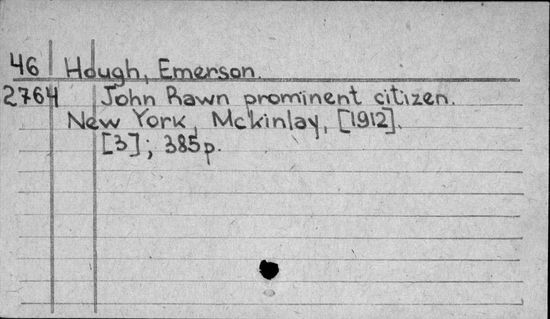 46 Hough, Emerson.
2764 John Rawn prominent citizen.
New York, Mckinlay, [1912].
[3]; 385p.